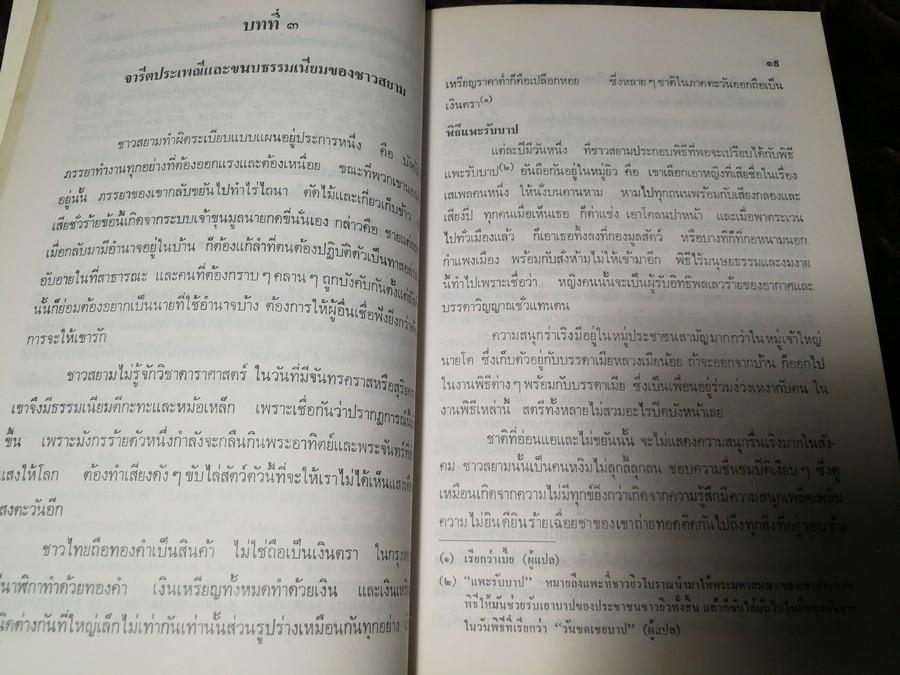 บทที่ ๓
จารีตประเพณีและขนบธรรมเนียมของชาวสยาม
ชาวสยามทำผิดระเบียบแบบแผนอยู่ประการหนึ่ง คือ บังคับ
ภรรยาทำงานทุกอย่างที่ต้องออกแรงและต้องเหนื่อย ขณะที่พวกเขานอน
อยู่นั้น ภรรยาของเขากลับขยันไปทำไร่ไถนา ตัดไม้และเกี่ยวเก็บข้าว
เสียชั่วร้ายข้อนี้เกิดจากระบบเจ้าขุนมูลนายกดขี่นั่นเอง กล่าวคือ ชายแต่ละ
เมื่อกลับมามีอำนาจอยู่ในบ้าน ก็ต้องแก้ลำที่ตนต้องปฏิบัติตัวเป็นทาสอย่าง
อับอายในที่สาธารณะ และคนที่ต้องกราบ ๆ คลาน ๆ ถูกบังคับกันตั้งแต่
นั้นก็ย่อมต้องอยากเป็นนายที่ใช้อำนาจบ้าง ต้องการให้ผู้อื่นเชื่อฟังยิ่งกว่าต้อง
การจะให้เขารัก
ชาวสยามไม่รู้จักวิชาดาราศาสตร์ ในวันที่มีจันทรคราสหรือสุริยคราส
เขาจึงมีธรรมเนียมตีกะทะและหม้อเหล็ก เพราะเชื่อกันว่าปรากฏการณ์นั้น
ขึ้น เพราะมังกรร้ายตัวหนึ่งกำลังจะกลืนกินพระอาทิตย์และพระจันทร์ที่
แสงให้โลก ต้องทำเสียงดัง ๆ ขับไล่สัตว์ตัวนี้ที่จะให้เราไม่ได้เห็นแสง
สงตะวันอีก
ชาวไทยถือทองคำเป็นสินค้า ไม่ใช่ถือเป็นเงินตรา ในกรุง
นาฬิกาทำด้วยทองคำ เงินเหรียญทั้งหมดทำด้วยเงิน และเงินเหรียญ
นิดต่างกันที่ใหญ่เล็กไม่เท่ากันเท่านั้นส่วนรูปร่างเหมือนกันทุกอย่าง
๑๙
เหรียญราคาต่ำก็คือเปลือกหอย ซึ่งหลาย ๆ ชาติในภาคตะวันออกถือเป็น
เงินตรา(๑)
พิธีแพะรับบาป
แต่ละปีมีวันหนึ่ง ที่ชาวสยามประกอบพิธีที่พอจะเปรียบได้กับพิธี
แพะรับบาป(๒) อันถือกันอยู่ในหมู่ยิว คือ เขาเลือกเอาหญิงที่เสียชื่อในเรื่อง
เสเพลคนหนึ่ง ให้นั่งบนคานหาม หามไปทุกถนนพร้อมกับเสียงกลองและ
เสียงปี่ ทุกคนเมื่อเห็นเธอ ก็ด่าแช่ง เอาโคลนปาหน้า และเมื่อพาตระเวน
ไปทั่วเมืองแล้ว ก็เอาเธอทิ้งลงที่กองมูลสัตว์ หรือบางทีก็ที่กอหนามนอก
กำแพงเมือง พร้อมกับสั่งห้ามไม่ให้เข้ามาอีก พิธีไร้มนุษยธรรมและงมงาย
นี้ทำไปเพราะเชื่อว่า หญิงคนนั้นจะเป็นผู้รับอิทธิพลเลวร้ายของอากาศและ
บรรดาวิญญาณชั่วแทนคน
ความสนุกร่าเริงมีอยู่ในหมู่ประชาชนสามัญมากกว่าในหมู่เจ้าใหญ่
นายโต ซึ่งเก็บตัวอยู่กับบรรดาเมียหลวงเมียน้อย ถ้าจะออกจากบ้าน ก็ออกไป
ในงานพิธีต่าง ๆ พร้อมกับบรรดาเมีย ซึ่งเป็นเพื่อนอยู่ร่วมง่วงเหงากับตน ใน
งานพิธีเหล่านี้ สตรีทั้งหลายไม่สวมอะไรปิดบังหน้าเลย
ชาติที่อ่อนแอและไม่ขยันนั้น จะไม่แสดงความสนุกรื่นเริงมากในสัง-
คม ชาวสยามนั้นเป็นคนหงิมไม่ลุกลี้ลุกลน ชอบความชื่นชมปีติเงียบ ๆ ซึ่งดู
เหมือนเกิดจากความไม่มีทุกข์ยิ่งกว่าเกิดจากความรู้สึกมีความสนุกเพลิดเพลิน
ความไม่ยินดียินร้ายเฉื่อยชาของเขาถ่ายทอดติดกันไปถึงทุกสิ่งที่อยู่รอบข้าง
(๑) เรียกว่าเบี้ย (ผู้แปล)
(๒) “แพะรับบาป” หมายถึงแพะที่ชาวยิวโบราณนำมาให้พระมหาสมณะของเขาประกอบ
พิธีให้มันช่วยรับเอาบาปของประชาชนชาวยิวทั้งสิ้น แล้วก็ขับไล่มันไปใน
ในวันพิธีที่เรียกว่า “วันชดเชยบาป” (ผู้แปล)